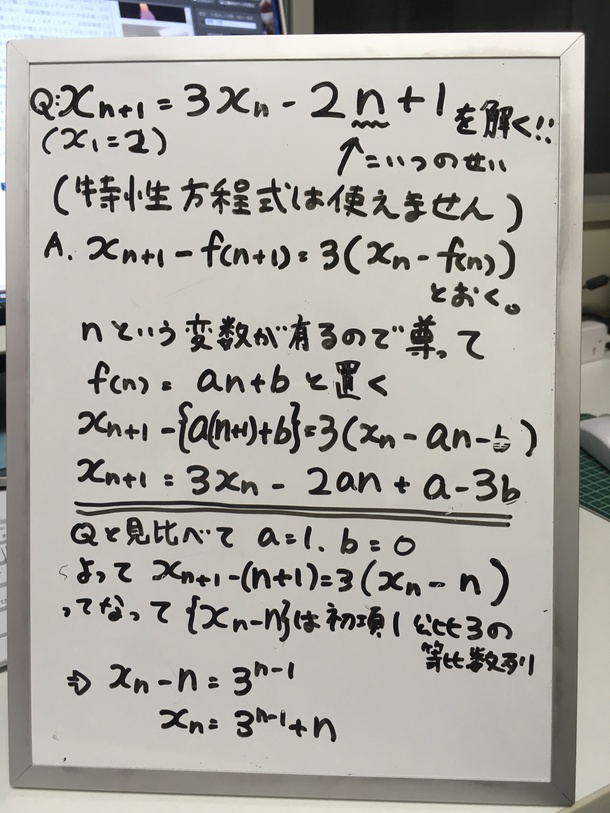 Q:x_{n+1} = 3x_n - 2n + 1 を解く!!
(x_1=2)
↑=いつのせい
(特性方程式は使えません)
A. x_{n+1} - f(n+1) = 3(x_n - f(n))
とおく。
nという変数が有るので尊って
f(n) = an+b と置く
x_{n+1} - {a(n+1)+b} = 3(x_n - an - b)
x_{n+1} = 3x_n - 2an + a - 3b
Qと見比べて a=1. b=0
よって x_{n+1} - (n+1) = 3(x_n - n)
ってなって {x_n-n}は初項1 公比3の
等比数列
⇒ x_n - n = 3^{n-1}
x_n = 3^{n-1} + n